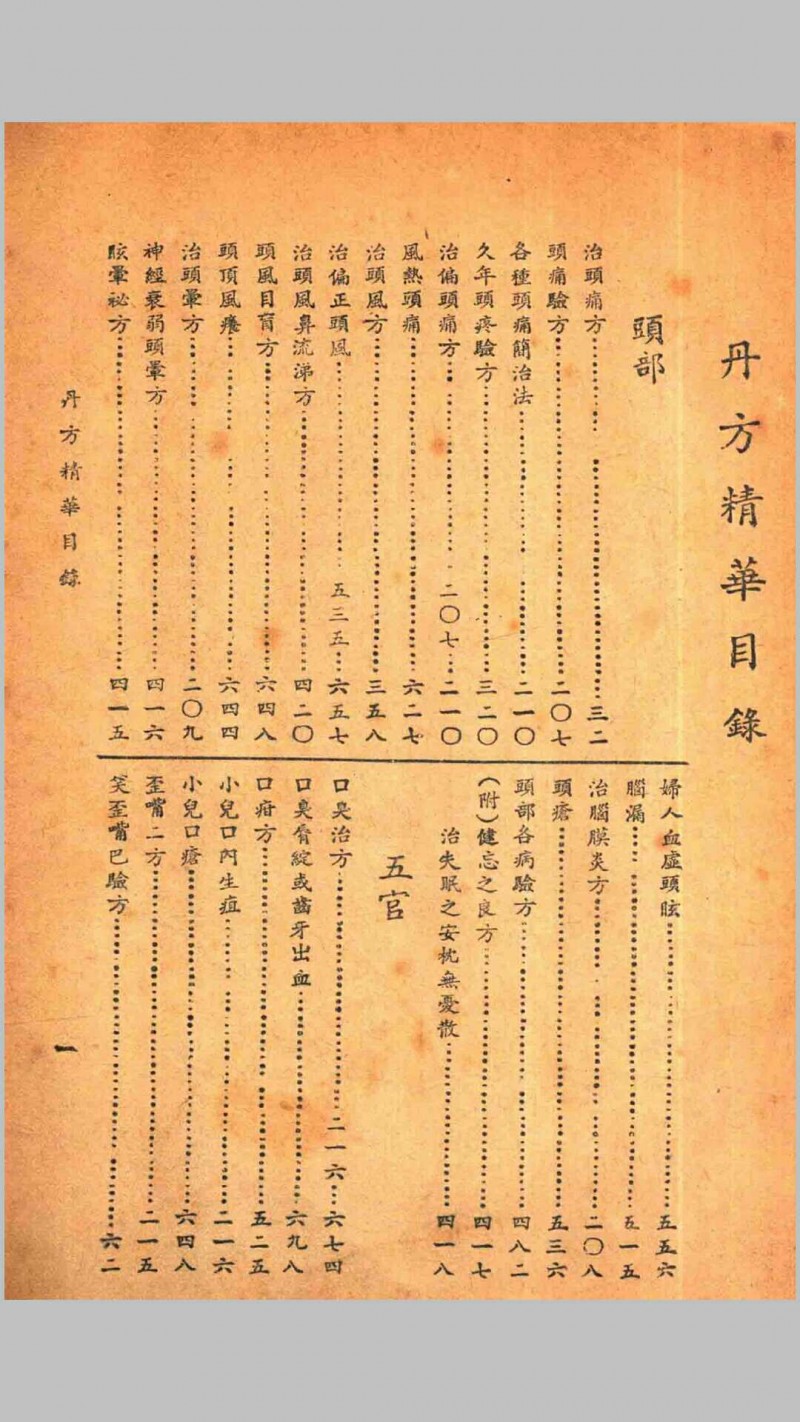 丹方精華目錄
頭部
治頭痛方……三二
頭痛驗方……二〇七
各種頭痛簡治法……二一〇
久年頭疼驗方……三二〇
治偏頭痛方……二〇七…二一〇
風熱頭痛……六二七
治頭風方……三五八
治偏正頭風……五三五…六五七
治頭風鼻流涕方……四二〇
頭風目盲方……六四八
頭頂風癢……六四四
治頭暈方……二〇九
神經衰弱頭暈方……四一六
眩暈祕方……四一五
婦人血虛頭眩……五五六
腦漏……五一五
治腦膜炎方……二〇八
頭瘡……五三六
頭部各病驗方……四八二
(附)健忘之良方……四一七
治失眠之安枕無憂散……四一八
五官
口臭治方……二一六…六七四
口臭脣綻或齒牙出血……六九八
口疳方……五二五
小兒口內生疽……二一六
小兒口瘡……六四八
歪嘴二方……二一五
笑歪嘴巴驗方……六二
丹方精華目錄
一